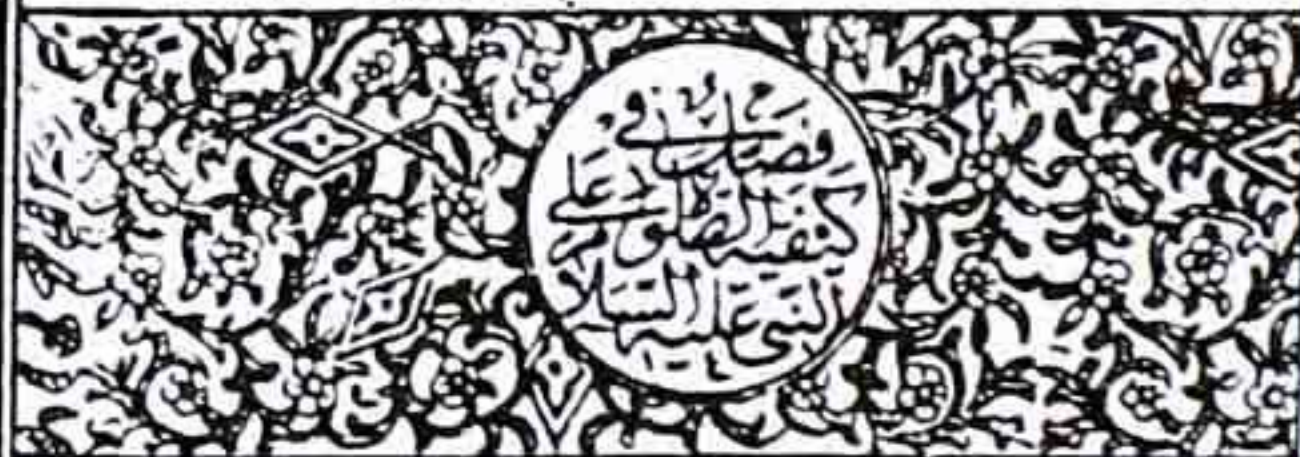 فصل في
كيفية الصلوة على
النبي عليه السلام